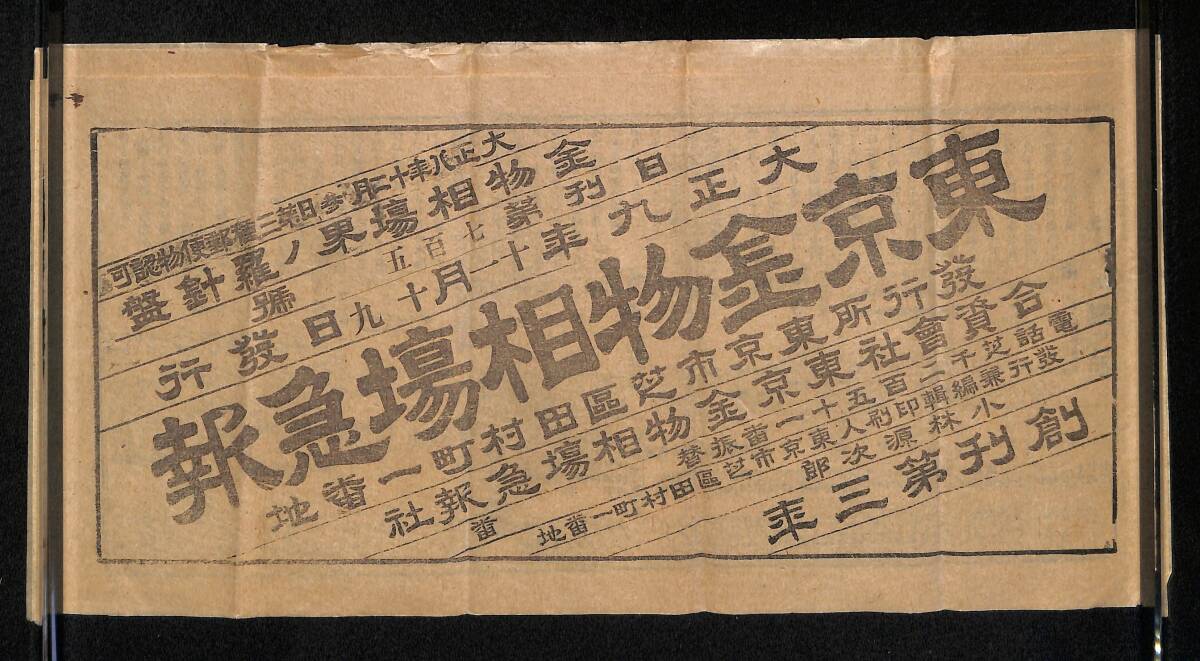 大正八年十二月参日第三種郵便物認可
金物相場界ノ羅針盤
日刊第七百五號
大正九年十一月十九日發行
東京金物相塲急報
發行所東京市芝區田村町一番地
合資會社東京金物相塲急報社
電話芝千二百五十一番振替 番
發行兼編輯印刷人東京市芝區田村町一番地
小林源次郎
創刊第三年